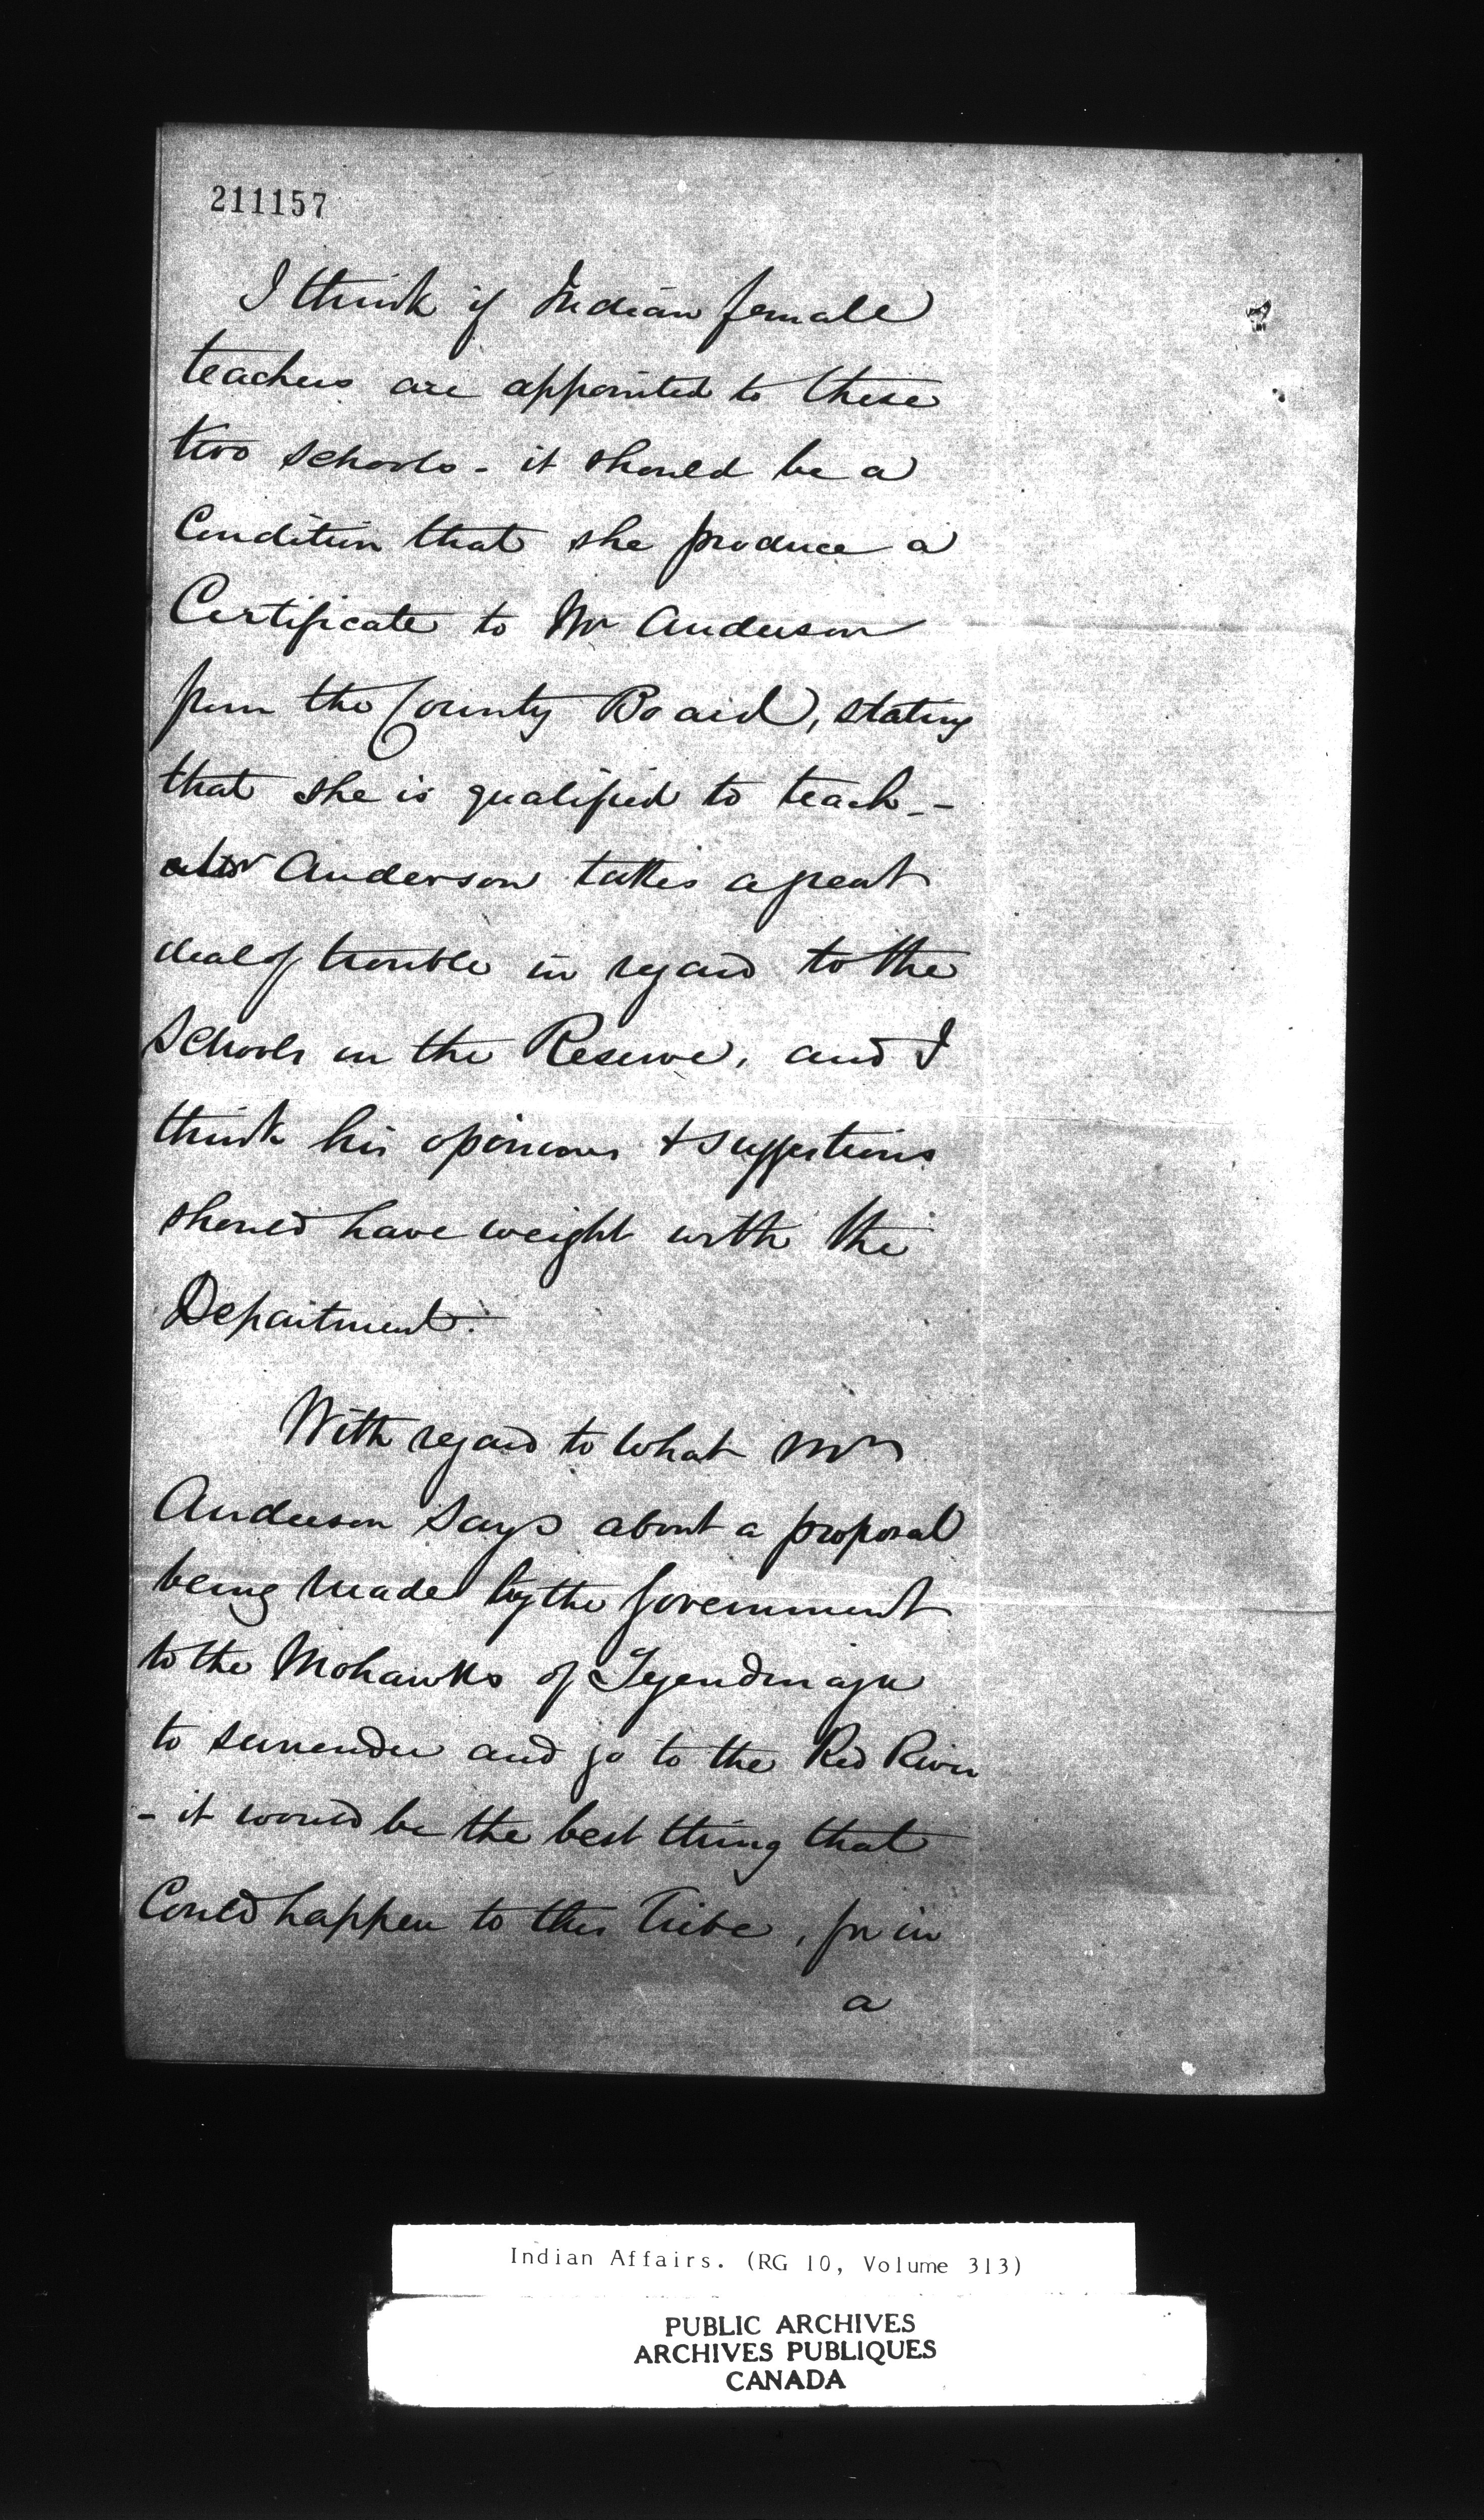 211157
I think if Indian female
teachers are appointed to these
two schools - it should be a
Condition that she produce a
Certificate to Mr Anderson
from the County Board, stating
that she is qualified to teach -
Mr Anderson takes a great
deal of trouble in regard to the
Schools on the Reserve, and I
think his opinions & suggestions
should have weight with the
Department.
With regard to what Mr
Anderson says about a proposal
being made by the Government
to the Mohawks of Tyendinaga
to surrender and go to the Red River
- it would be the best thing that
Could happen to this Tribe, for in
a
Indian Affairs. (RG 10, Volume 313)
PUBLIC ARCHIVES
ARCHIVES PUBLIQUES
CANADA